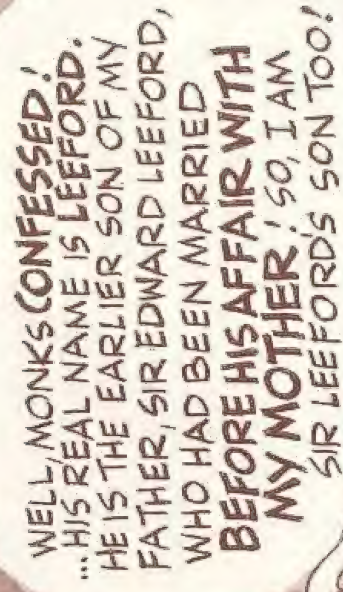 WELL, MONKS CONFESSED!
...HIS REAL NAME IS LEEFORD.
HE IS THE EARLIER SON OF MY
FATHER, SIR EDWARD LEEFORD,
WHO HAD BEEN MARRIED
BEFORE HIS AFFAIR WITH
MY MOTHER! SO, I AM
SIR LEEFORD'S SON TOO!